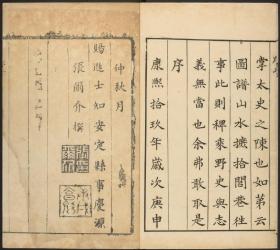 掌太史之陳也如第云
圖譜山水摭拾閭巷往
事此則稗乘野史與志
義無當也余弗敢取是
序
康熙拾玖年歲次庚申
仲秋月
賜進士知安定縣事慶源
張爾介撰